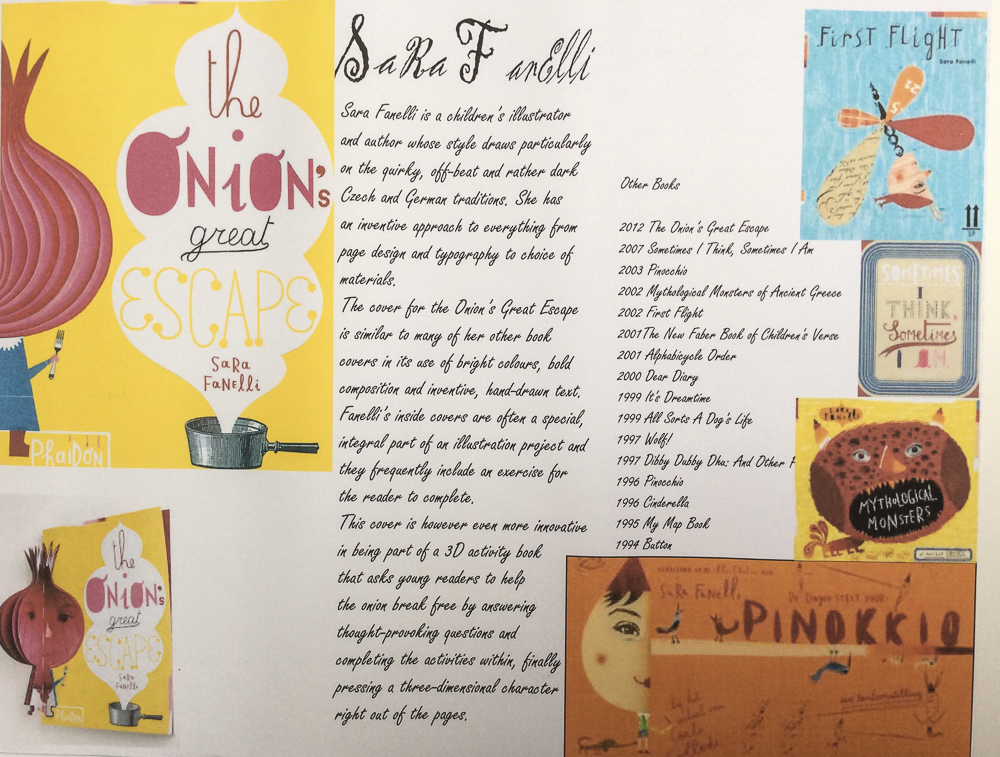 the
ONION's
great
ESCAPE
SaRa
FaNElli
PhaiDON
SaRa FanElli
Sara Fanelli is a children's illustrator
and author whose style draws particularly
on the quirky, off-beat and rather dark
Czech and German traditions. She has
an inventive approach to everything from
page design and typography to choice of
materials.
The cover for the Onion's Great Escape
is similar to many of her other book
covers in its use of bright colours, bold
composition and inventive, hand-drawn text.
Fanelli's inside covers are often a special,
integral part of an illustration project and
they frequently include an exercise for
the reader to complete.
This cover is however even more innovative
in being part of a 3D activity book
that asks young readers to help
the onion break free by answering
thought-provoking questions and
completing the activities within, finally
pressing a three-dimensional character
right out of the pages.
Other Books
2012 The Onion's Great Escape
2007 Sometimes I Think, Sometimes I Am
2003 Pinocchio
2002 Mythological Monsters of Ancient Greece
2002 First Flight
2001The New Faber Book of Children's Verse
2001 Alphabicycle Order
2000 Dear Diary
1999 It's Dreamtime
1999 All Sorts A Dog's Life
1997 Wolf!
1997 Dibby Dubby Dhu: And Other F
1996 Pinocchio
1996 Cinderella
1995 My Map Book
1994 Button
FiRST FLiGHT
Sara Fanelli
UP
SOMETIMES
I
THINK,
Sometimes
I AM.
MYTHOLOGICAL
MONSTERS
SaRa FaNElli
PINOKKIO
the
ONION's
great
ESCAPE
SaRa
FaNElli